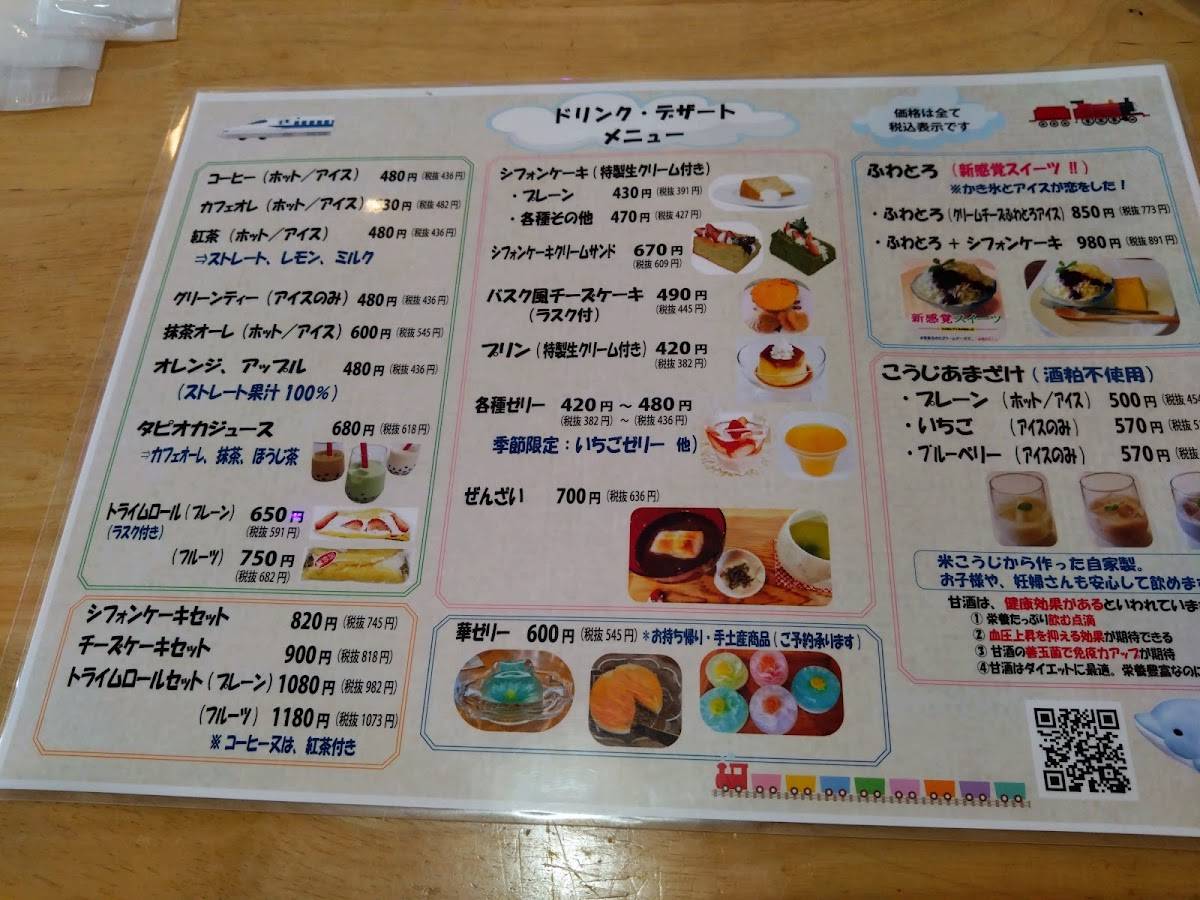 ドリンク・デザート
メニュー
価格は全て
税込表示です
コーヒー(ホット/アイス) 480円(税抜436円)
カフェオレ(ホット/アイス) 30円(税抜482円)
紅茶(ホット/アイス) 480円(税抜436円)
⇒ストレート、レモン、ミルク
グリーンティー(アイスのみ) 480円(税抜436円)
抹茶オーレ(ホット/アイス) 600円(税抜545円)
オレンジ、アップル 480円(税抜436円)
(ストレート果汁100%)
タピオカジュース 680円(税抜618円)
⇒カフェオーレ、抹茶、ほうじ茶
トライムロール(プレーン) 650円
(ラスク付き) (税抜591円)
(フルーツ) 750円
(税抜682円)
シフォンケーキセット 820円(税抜745円)
チーズケーキセット 900円(税抜818円)
トライムロールセット(プレーン) 1080円(税抜982円)
(フルーツ) 1180円(税抜1073円)
※コーヒー又は、紅茶付き
シフォンケーキ(特製生クリーム付き)
・プレーン 430円(税抜391円)
・各種その他 470円(税抜427円)
シフォンケーキクリームサンド 670円
(税抜609円)
バスク風チーズケーキ 490円
(ラスク付) (税抜445円)
プリン(特製生クリーム付き) 420円
(税抜382円)
各種ゼリー 420円~480円
(税抜382円)~(税抜436円)
季節限定:いちごゼリー 他)
ぜんざい 700円(税抜636円)
華ゼリー 600円(税抜545円)*お持ち帰り・手土産商品(ご予約承ります)
ふわとろ(新感覚スイーツ!!)
※かき氷とアイスが恋をした!
・ふわとろ(クリームチーズふわとろアイス) 850円(税抜773円)
・ふわとろ+シフォンケーキ 980円(税抜891円)
新感覚スイーツ
こうじあまざけ(酒粕不使用)
・プレーン(ホット/アイス) 500円(税抜454
・いちご(アイスのみ) 570円(税抜5
・ブルーベリー(アイスのみ) 570円(税抜
米こうじから作った自家製。
お子様や、妊婦さんも安心して飲めます
甘酒は、健康効果があるといわれていま
①栄養たっぷり飲む点滴
②血圧上昇を抑える効果が期待できる
③甘酒の善玉菌で免疫力アップが期待
④甘酒はダイエットに最適。栄養豊富なのに